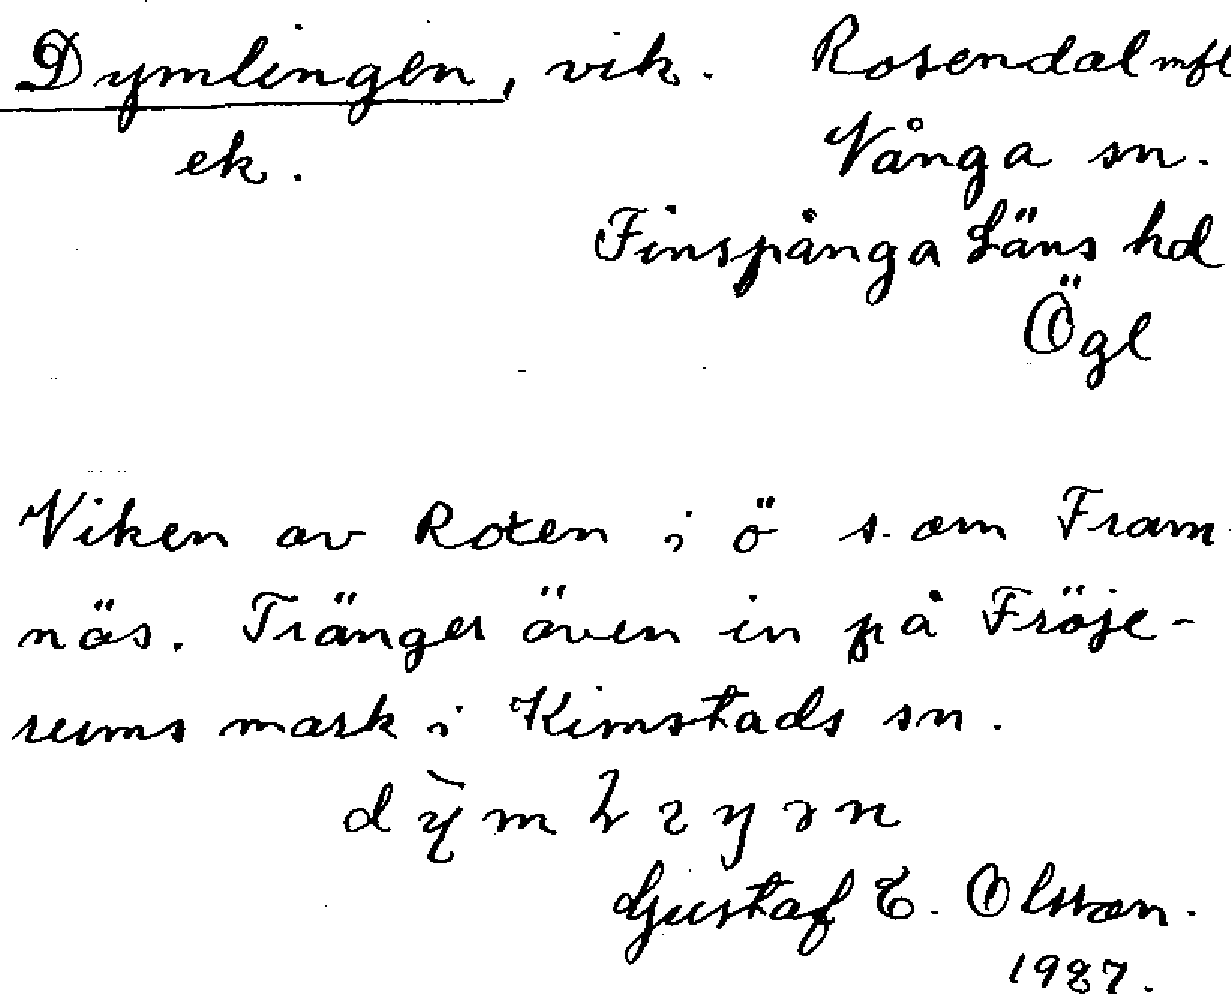 Dymlingen, vik. Rosendal mfl
ek. Vånga sn.
Finspånga Läns hd
Ögl
Viken av Roxen i ö s. om Fram-
näs. Tränger även in på Fröje-
rums mark i Kimstads sn.
Gustaf E. Olsson.
1927.